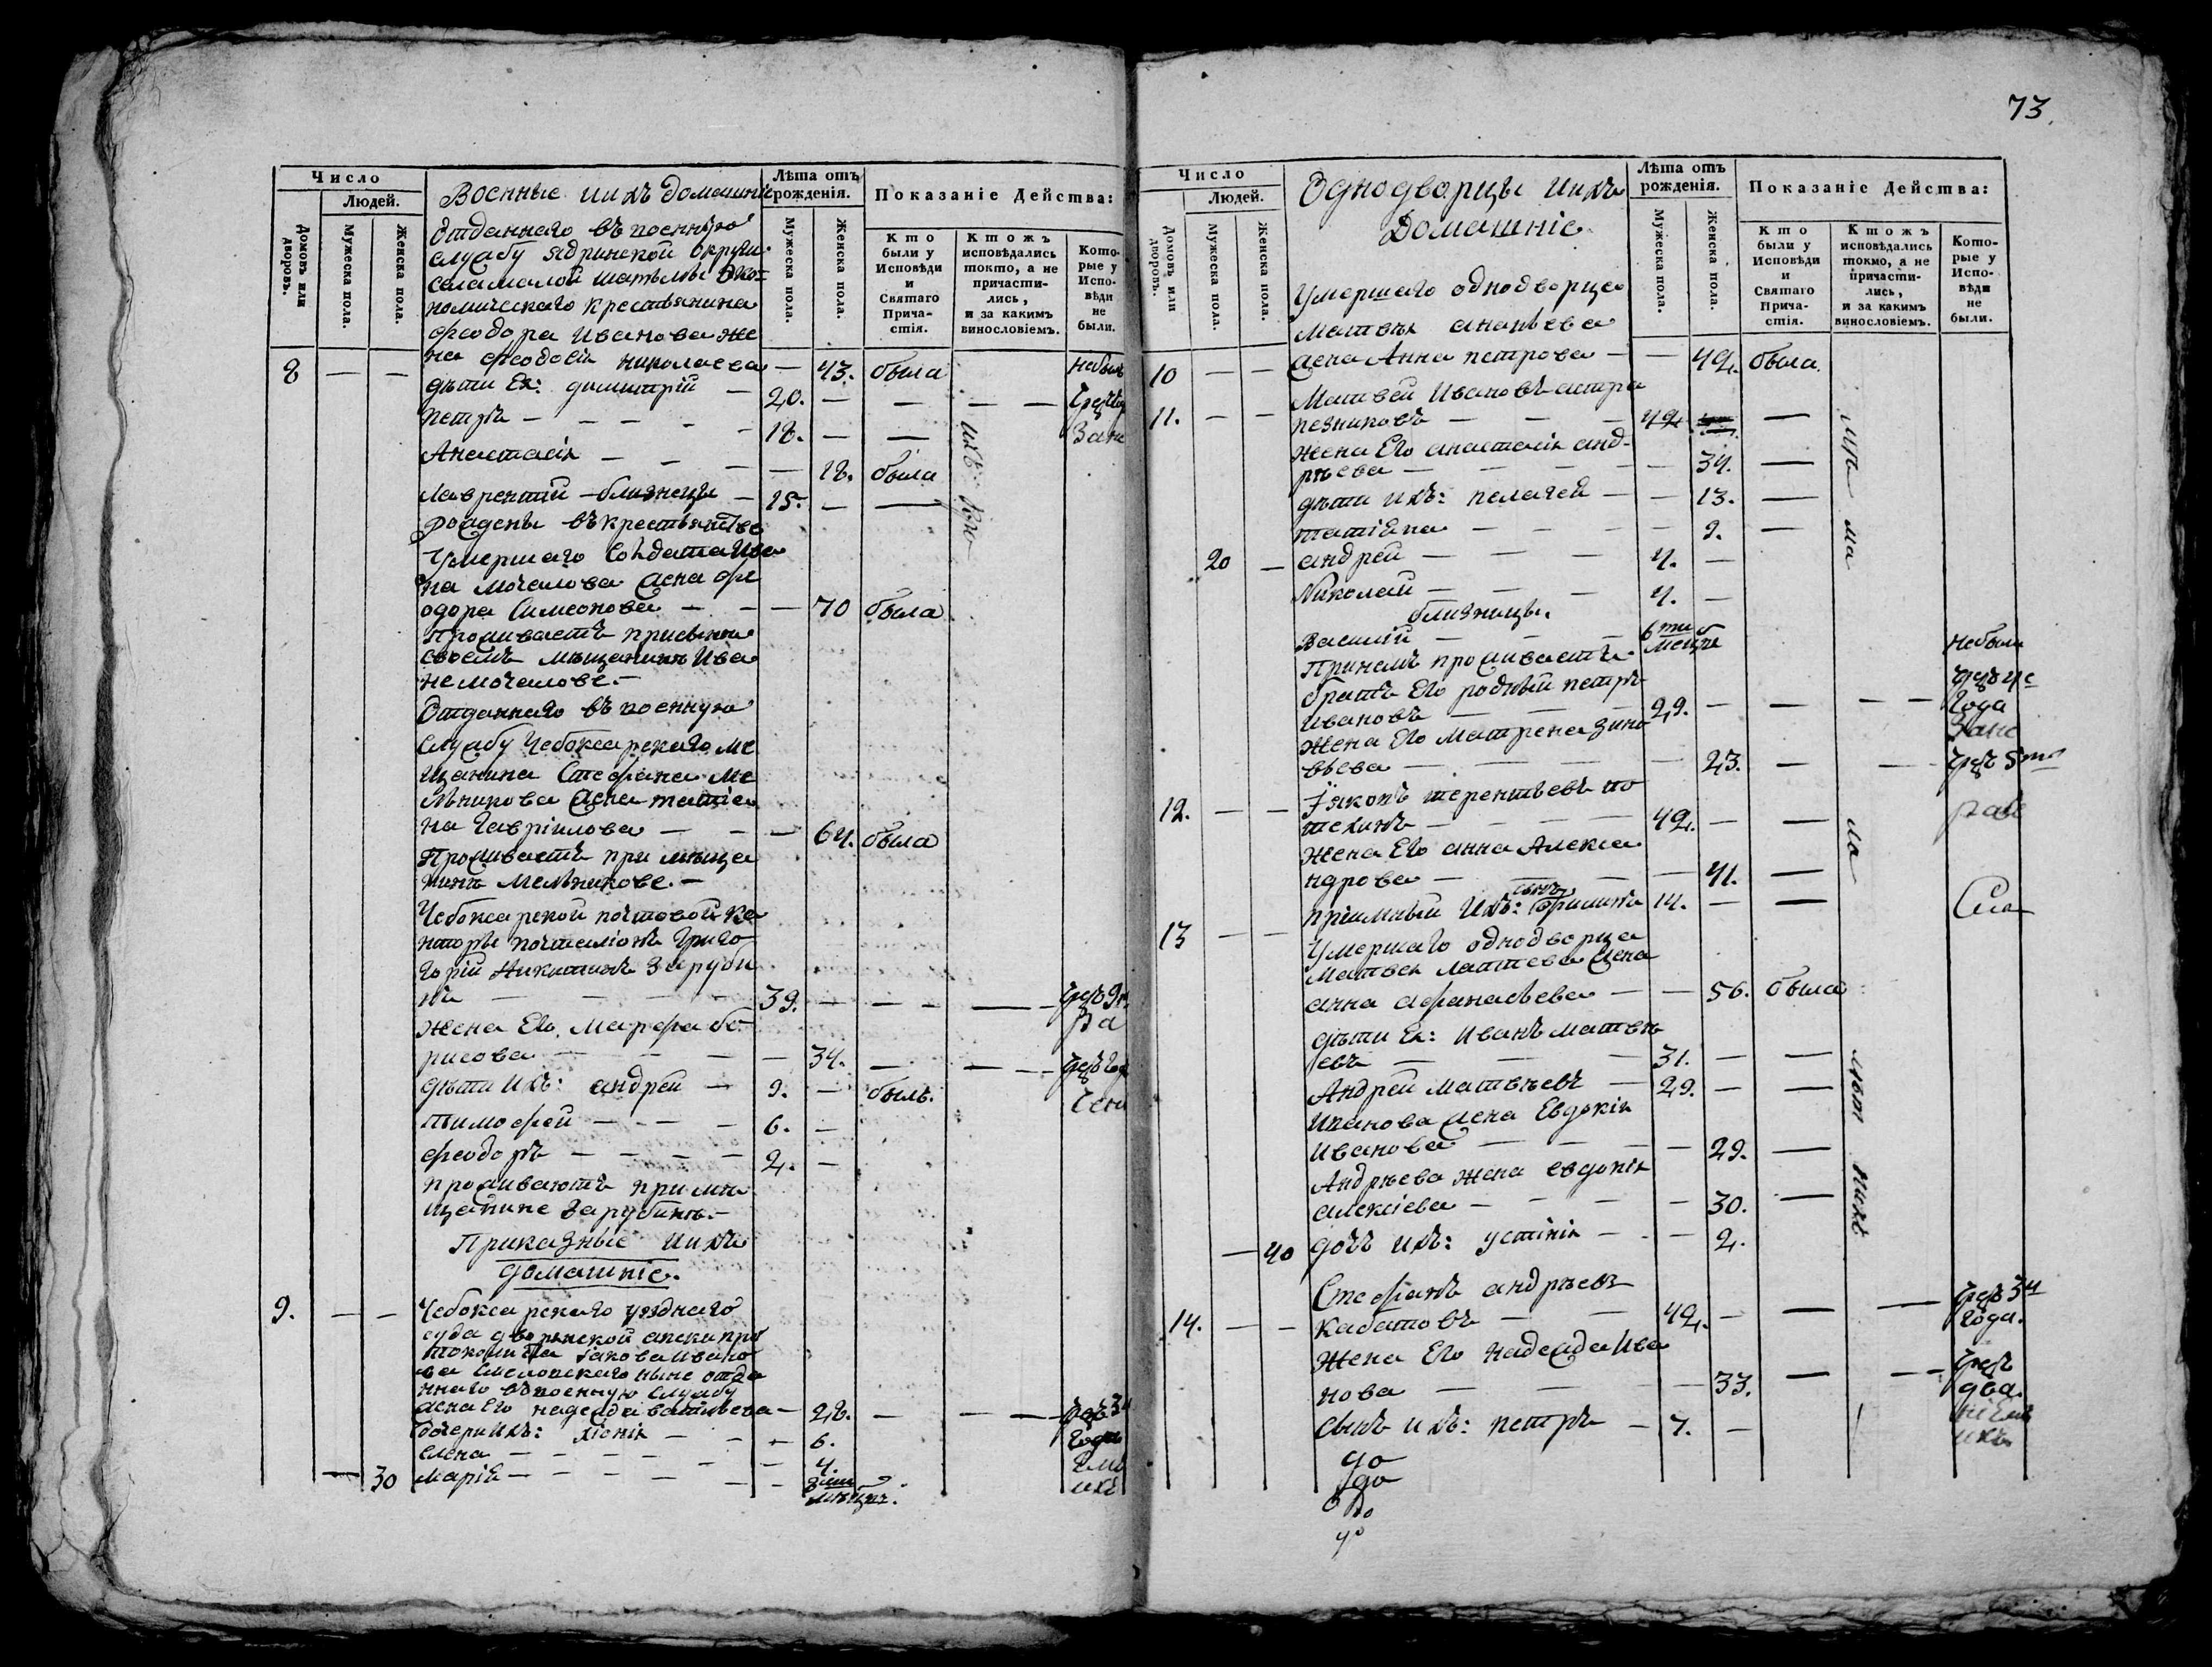 73.
Число
Людей.
Домовъ или дворовъ.
Мужеска пола.
Женска пола.
Военные и ихъ домашніе
Лѣта отъ рожденія.
Мужеска пола.
Женска пола.
Показаніе Действа:
Кто были у Исповѣди и Святаго Причастія.
Ктожъ исповѣдались токмо, а не причастились, и за какимъ винословіемъ.
Которые у Исповѣди не были.
Отданнаго въ военную
службу Ядринской округи
села малой шатьмы эко-
номическаго крестьянина
Феодора Иванова же
8 — — на Феодосія Николаева — 43. была
дѣти Ея: димитрій — 20. — — —
Петръ — — — — 18. — —
Анастасія — — — — 18. была
Лаврентий близнецы — 15. — —
Рождены въ крестьянстве
Умершаго Солдата Ива
на Мочалова жена Фе
одора Симеонова — — — 70 была
Проживаетъ при сыне
своемъ мѣщанине Ива
не мочалове. —
Отданнаго въ военную
службу Чебоксарскаго ме
щанина Стефана Ме
лникова жена татіа
на Гавріилова — — — 64. была
Проживаетъ при мѣща
нинѣ Мелникове. —
Чебоксарской почтовой ко
нторы почталіонъ Григо
горій Никитинъ Заруби
нъ — — — — 39. — — —
Жена Его Марфа бо-
рисова — — — — 34. — — —
дѣти ихъ: андрей — 9. — былъ.
тимофей — — — 6. —
феодоръ — — — — 2. —
проживаютъ при мѣ
щанине Зарубинѣ. —
Приказные и ихъ
домашніе.
9. — — Чебоксарскаго уезднаго
суда дворянской опеки про
токолиста Іакова Ивано
ва ныне отда
ннаго въ военную службу
жена Его надежда васильева — 28. — — —
дочери ихъ: — — — 6.
елена — — — — — 4.
— 30 Марія — — — —
Число
Людей.
Домовъ или дворовъ.
Мужеска пола.
Женска пола.
Однодворцы и ихъ
Домашніе
Лѣта отъ рожденія.
Мужеска пола.
Женска пола.
Показаніе Действа:
Кто были у Исповѣди и Святаго Причастія.
Ктожъ исповѣдались токмо, а не причастились, и за какимъ винословіемъ.
Которые у Исповѣди не были.
Умершаго однодворца
Матвѣя ананьева
10 — — жена Анна петрова — — 42. была
Матвей Ивановъ
11. — — — — — —
жена Его анастасія анд-
рѣева — — — — — 34. —
дѣти ихъ: пелагея — — 13. —
татіана — — — — 9. —
20 — андрей — — — 4. —
Николай — — — 4. —
близнецы.
василій — —
При немъ проживаетъ
братъ Его родный петръ
Ивановъ — — — 29. — — —
Жена Его Матрена Зино
вьева — — — — 23. — —
12. — — Іяковъ терентьевъ по
техинъ — — — 42. — —
Жена Его анна Алекса
ндрова — — — — 41. —
пріимный ихъ: сынъ 14. — —
13 — — Умершаго однодворца
Матвея Лаптева жена
анна афанасьева — — 56. была
дѣти Ея: Иванъ матвѣ
евъ — — — 31. — —
Андрей матвѣевъ — 29. — —
Иванова жена Евдокія
Иванова — — — — 29. —
Андрѣева жена евдокія
алексіева — — — — 30. —
— 40 дочь ихъ: устінія — — — 2.
Стефанъ андрѣевъ
14. — — Кабатовъ — — 42. — — —
Жена Его надежда Ива
нова — — — 33. — —
сынъ ихъ: петръ — 7. —